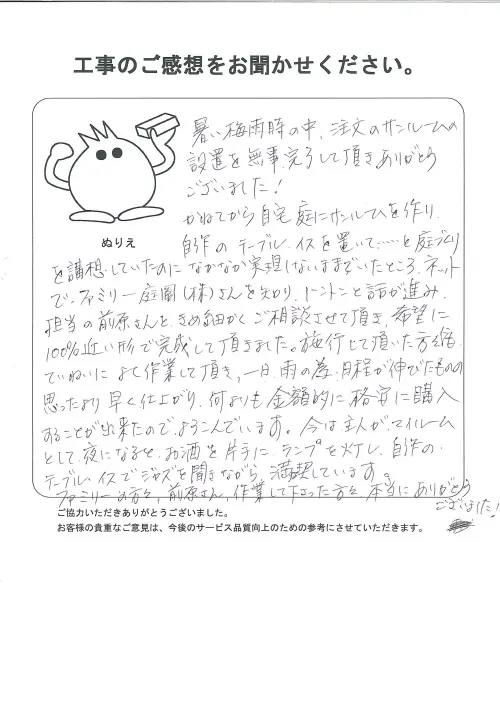 工事のご感想をお聞かせください。
暑い梅雨時の中、注文のサンルームの
設置を無事完了して頂きありがとう
ございました!
かねてから自宅庭にサンルームを作り、
ぬりえ
自作のテーブル、イスを置いて……と庭づくり
を構想していたのになかなか実現しないままでいたところ、ネット
で、ファミリー庭園(株)さんを知り、トントンと話が進み、
担当の前原さんと、きめ細かくご相談させて頂き、希望に
100%近い形で完成して頂きました。施行して頂いた方々も
ていねいによく作業して頂き、一日、雨の為、日程が伸びたものの
思ったより早く仕上がり、何よりも金額的に格安に購入
することが出来たのでよろこんでいます。今は主人がマイルーム
として、夜になると、お酒を片手に、ランプを灯し、自作の
テーブル、イスでジャズを聞きながら、満喫しています。
ファミリーの方々、前原さん、作業して下さった方々、本当にありがとう
ございました!
ご協力いただきありがとうございました。
お客様の貴重なご意見は、今後のサービス品質向上のための参考にさせていただきます。